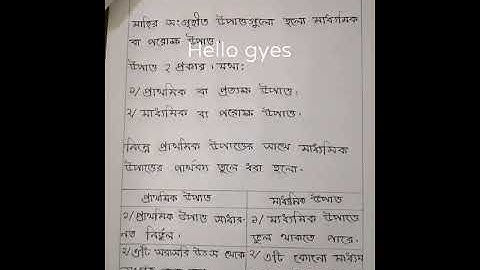 মাহির সংগৃহীত উপাত্তগুলো হলো মাধ্যমিক
বা পরোক্ষ উপাত্ত।
Hello gyes
উপাত্ত ২ প্রকার। যথা:
১/ প্রাথমিক বা প্রত্যক্ষ উপাত্ত।
২/ মাধ্যমিক বা পরোক্ষ উপাত্ত।
নিম্নে প্রাথমিক উপাত্তের সাথে মাধ্যমিক
উপাত্তের পার্থক্য তুলে ধরা হলো।
প্রাথমিক উপাত্ত
মাধ্যমিক উপাত্ত
১/ প্রাথমিক উপাত্ত সাধার-
নত নির্ভুল।
১/ মাধ্যমিক উপাত্তে
ভুল থাকতে পারে।
২/ এটি সরাসরি উৎস থেকে
২/ এটি কোনো মাধ্যম